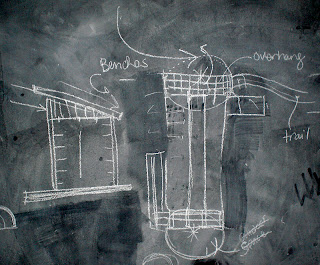 Benches
overhang
trail